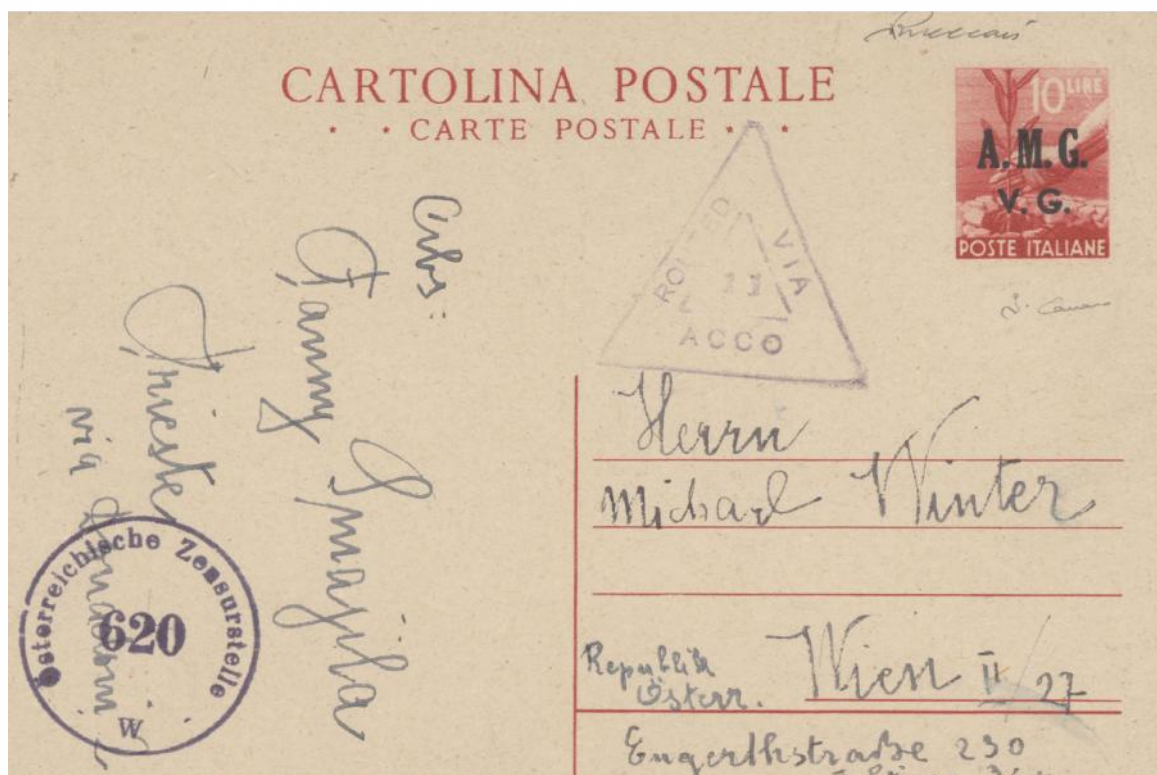 CARTOLINA POSTALE
CARTE POSTALE
10 LIRE
A.M.G.
V. G.
POSTE ITALIANE
ROUTED VIA
ACCO
Abs:
Fanny Smajila
Trieste
via
Österreichische Zensurstelle
620
W
Herrn
Michael Winter
Republik
Österr.
Wien II/27
Engerthstraße 230